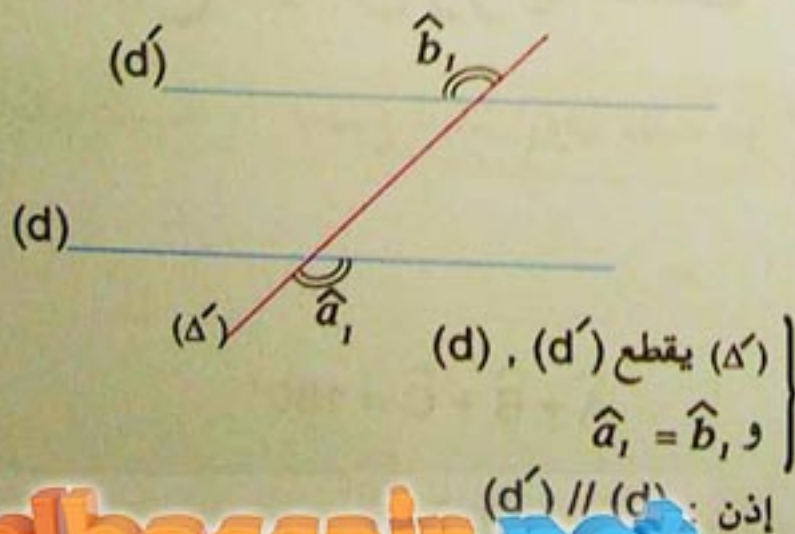 (d′)
b̂₁
(d)
(Δ′)
â₁
(Δ′) يقطع (d′) , (d)
و â₁ = b̂₁
إذن : (d′) // (d)